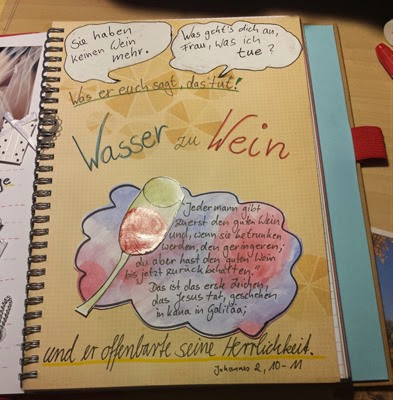 Sie haben
keinen Wein
mehr.
Was geht's dich an,
Frau, was ich
tue?
Was er euch sagt, das tut!
Wasser zu Wein
"Jedermann gibt
zuerst den guten Wein
und, wenn sie betrunken
werden, den geringeren;
du aber hast den guten Wein
bis jetzt zurückbehalten."
Das ist das erste Zeichen,
das Jesus tat, geschehen
in Kana in Galiläa;
und er offenbarte seine Herrlichkeit.
Johannes 2, 10-11